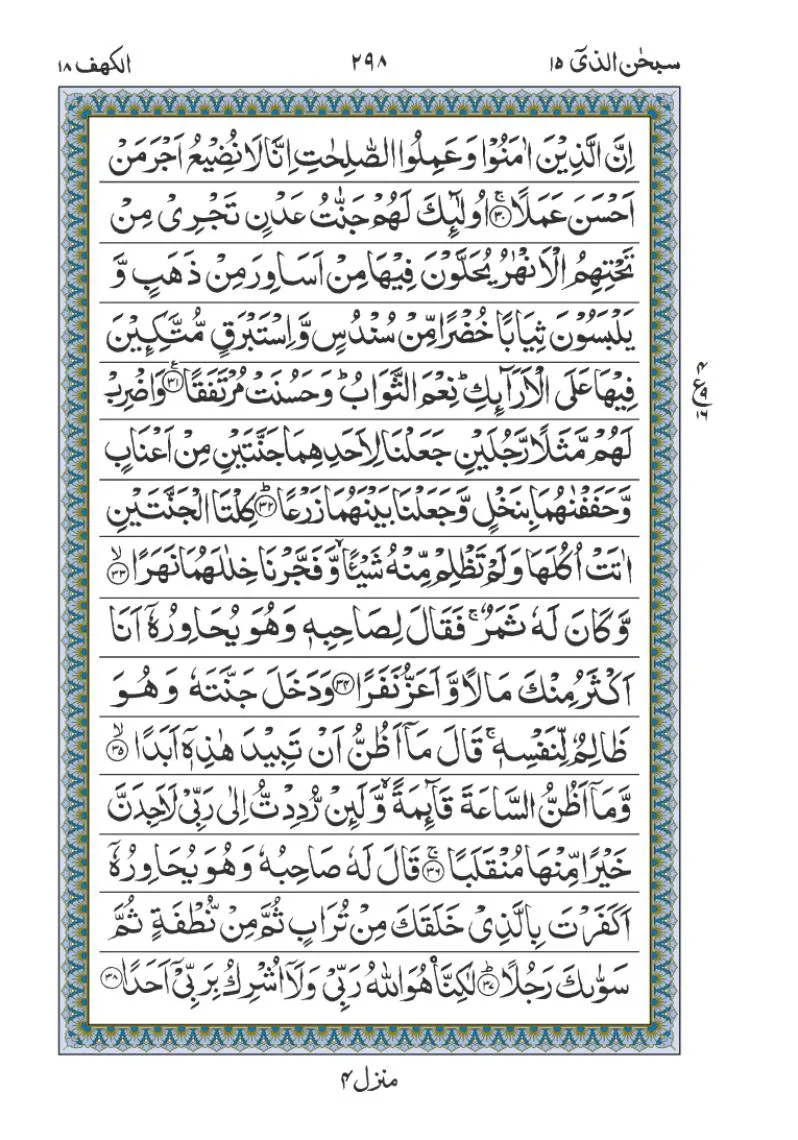 سبحٰن الذیٓ ۱۵
۲۹۸
الكهف ۱۸
اِنَّ الَّذِیۡنَ اٰمَنُوۡا وَ عَمِلُوا الصّٰلِحٰتِ اِنَّا لَا نُضِیۡعُ اَجۡرَ مَنۡ
اَحۡسَنَ عَمَلًا ۚ﴿۳۰﴾ اُولٰٓئِكَ لَهُمۡ جَنّٰتُ عَدۡنٍ تَجۡرِیۡ مِنۡ
تَحۡتِهِمُ الۡاَنۡهٰرُ یُحَلَّوۡنَ فِیۡهَا مِنۡ اَسَاوِرَ مِنۡ ذَهَبٍ وَّ
یَلۡبَسُوۡنَ ثِیَابًا خُضۡرًا مِّنۡ سُنۡدُسٍ وَّ اِسۡتَبۡرَقٍ مُّتَّكِـِٕیۡنَ
فِیۡهَا عَلَی الۡاَرَآئِكِ ؕ نِعۡمَ الثَّوَابُ ؕ وَ حَسُنَتۡ مُرۡتَفَقًا ﴿۳۱﴾ وَ اضۡرِبۡ
ع
۴
۹
۱۶
لَهُمۡ مَّثَلًا رَّجُلَیۡنِ جَعَلۡنَا لِاَحَدِهِمَا جَنَّتَیۡنِ مِنۡ اَعۡنَابٍ
وَّ حَفَفۡنٰهُمَا بِنَخۡلٍ وَّ جَعَلۡنَا بَیۡنَهُمَا زَرۡعًا ﴿ؕ۳۲﴾ كِلۡتَا الۡجَنَّتَیۡنِ
اٰتَتۡ اُكُلَهَا وَ لَمۡ تَظۡلِمۡ مِّنۡهُ شَیۡـًٔا ۙ وَّ فَجَّرۡنَا خِلٰلَهُمَا نَهَرًا ﴿ۙ۳۳﴾
وَّ كَانَ لَهٗ ثَمَرٌ ۚ فَقَالَ لِصَاحِبِهٖ وَ هُوَ یُحَاوِرُهٗۤ اَنَا
اَكۡثَرُ مِنۡكَ مَالًا وَّ اَعَزُّ نَفَرًا ﴿۳۴﴾ وَ دَخَلَ جَنَّتَهٗ وَ هُوَ
ظَالِمٌ لِّنَفۡسِهٖ ۚ قَالَ مَاۤ اَظُنُّ اَنۡ تَبِیۡدَ هٰذِهٖۤ اَبَدًا ﴿ۙ۳۵﴾
وَّ مَاۤ اَظُنُّ السَّاعَةَ قَآئِمَةً ۙ وَّ لَئِنۡ رُّدِدۡتُّ اِلٰی رَبِّیۡ لَاَجِدَنَّ
خَیۡرًا مِّنۡهَا مُنۡقَلَبًا ﴿ۚ۳۶﴾ قَالَ لَهٗ صَاحِبُهٗ وَ هُوَ یُحَاوِرُهٗۤ
اَكَفَرۡتَ بِالَّذِیۡ خَلَقَكَ مِنۡ تُرَابٍ ثُمَّ مِنۡ نُّطۡفَةٍ ثُمَّ
سَوّٰىكَ رَجُلًا ﴿ؕ۳۷﴾ لٰكِنَّا۠ هُوَ اللّٰهُ رَبِّیۡ وَ لَاۤ اُشۡرِكُ بِرَبِّیۡۤ اَحَدًا ﴿۳۸﴾
منزل ۴